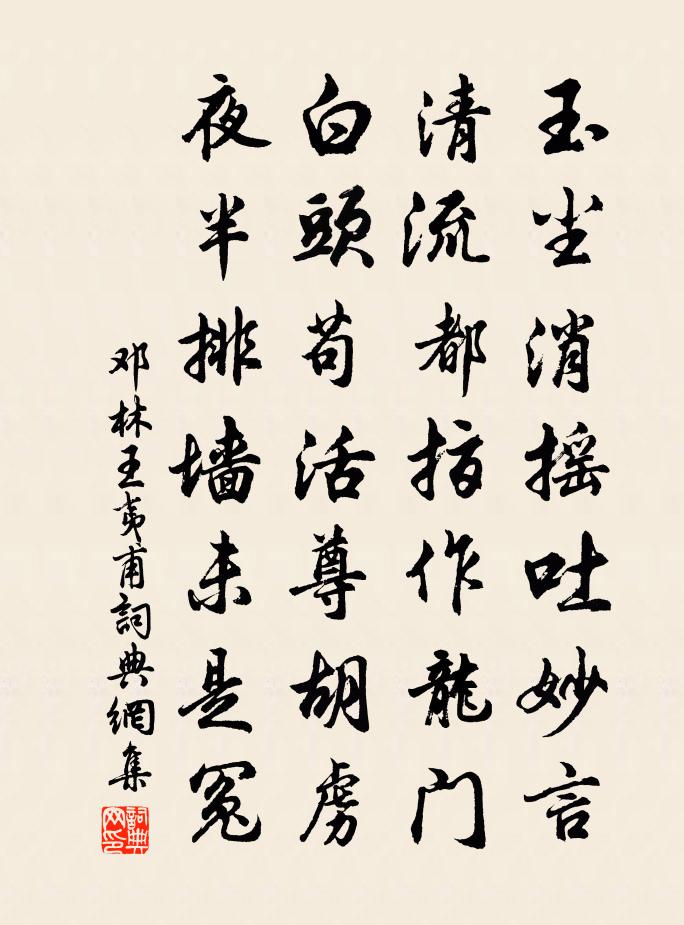 玉尘消摇吐妙言
清流都指作龍门
白頭苟活尊胡虜
夜半排墙未是冤
邓林王夷甫詞典網集
詞典
网印